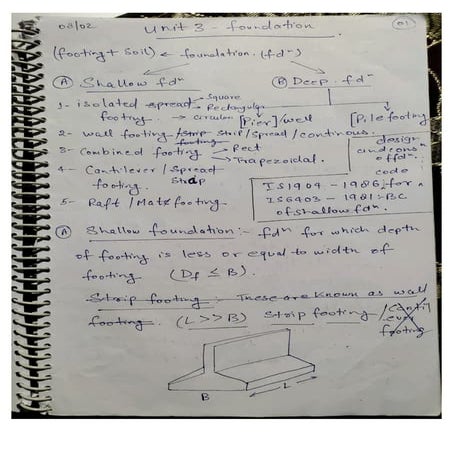 03/02 Unit 3 - foundation. 01
(footing + Soil) ← foundation. (fdⁿ)
(A) Shallow fdⁿ (B) Deep. fdⁿ
1- isolated spread - Square
footing. → Rectangular
→ circular [Pier]/well [Pile footing
2- wall footing / strip / spread / continous.
footing
3- Combined footing → Rect
→ Trapezoidal.
4- Cantilever / Spread
footing. Strap
5- Raft / Mat footing.
design
and cons
of fdⁿ.
code
IS1904 - 1986; for
IS6403 - 1981: BC
of shallow fdⁿ.
(A) Shallow foundation:- fdⁿ for which depth
of footing is less or equal to width of
footing (Df ≤ B).
Strip footing :- These are known as wall
footing. (L >> B) Strip footing / Cantil
ever
footing
B L